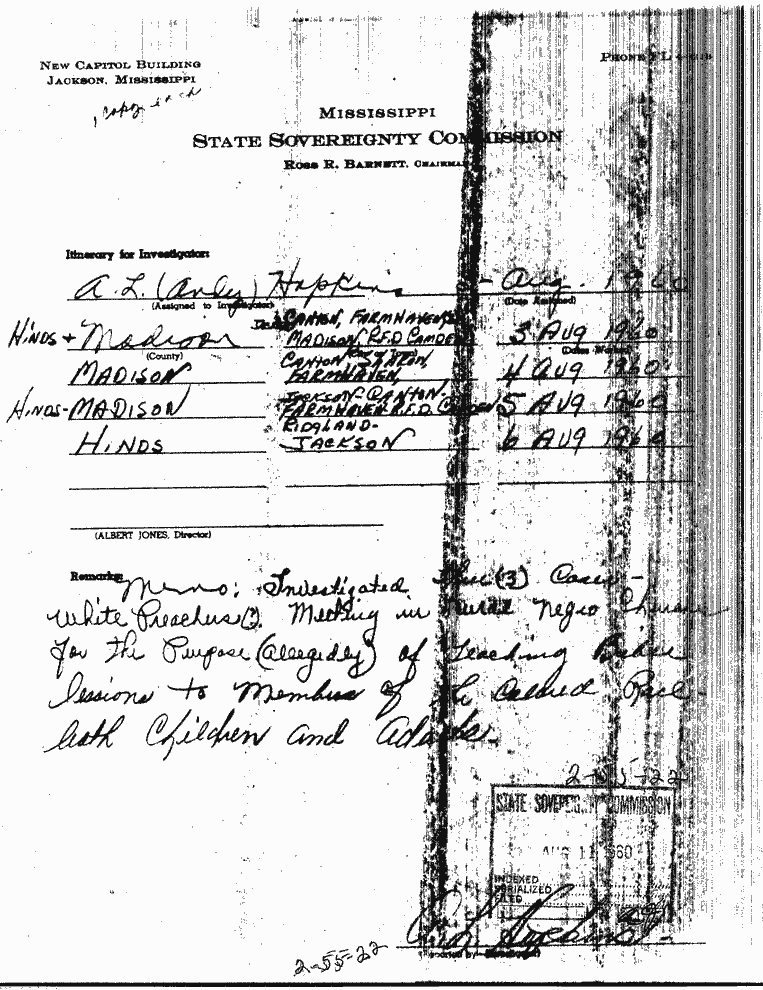 NEW CAPITOL BUILDING
JACKSON, MISSISSIPPI
PHONE FL
copy each
MISSISSIPPI
STATE SOVEREIGNTY COMMISSION
ROSS R. BARNETT, CHAIRMAN
Itinerary for Investigator:
A. L. (Andy) Hopkins - Aug. 1960
(Assigned to Investigator) (Date Assigned)
HINDS + Madison CANTON, FARMHAVEN, MADISON, R.F.D CAMDEN 3 AUG 1960
(County) (Dates Worked)
MADISON CANTON FARMHAVEN, 4 AUG 1960
HINDS-MADISON JACKSON-CANTON- FARMHAVEN-R.F.D. CAMDEN 5 AUG 1960
RIDGLAND-
HINDS JACKSON 6 AUG 1960
(ALBERT JONES, Director)
Remarks:
Memo: Investigated, (3) Cases-
White Preachers Meeting in Rural Negro Church
for the Purpose (allegedly) of Teaching
lessions to Members of Colored Race-
both Children and Adults.
2-55-22
STATE SOVEREIGNTY COMMISSION
AUG 11 1960
INDEXED
SERIALIZED
FILED
A L Hopkins-
2-55-22